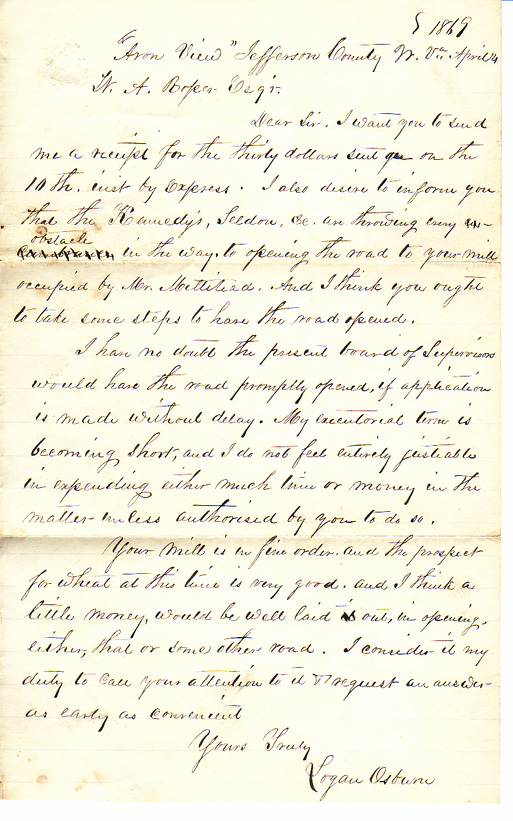 1869
"Avon View" Jefferson County W. Va. April
W. A. Roper Esqr.
Dear Sir. I want you to send
me a receipt for the thirty dollars sent on the
10th. inst by Express. I also desire to inform you
that the Kennedy's, Seldon, &c. are throwing every
obstacle
in the way, to opening the road to your mill
occupied by Mr. And I think you ought
to take some steps to have the road opened.
I have no doubt the present board of Supervisors
would have the road promptly opened, if application
is made without delay. My executorial term is
becoming short, and I do not feel entirely justiable
in expending either much time or money in the
matter unless authorised by you to do so.
Your mill is in fine order. and the prospect
for wheat at this time is very good. and I think a
little money, would be well laid out, in opening,
either, that or some other road. I consider it my
duty to call your attention to it & request an answer
as early as convenient
Yours Truly
Logan Osburn